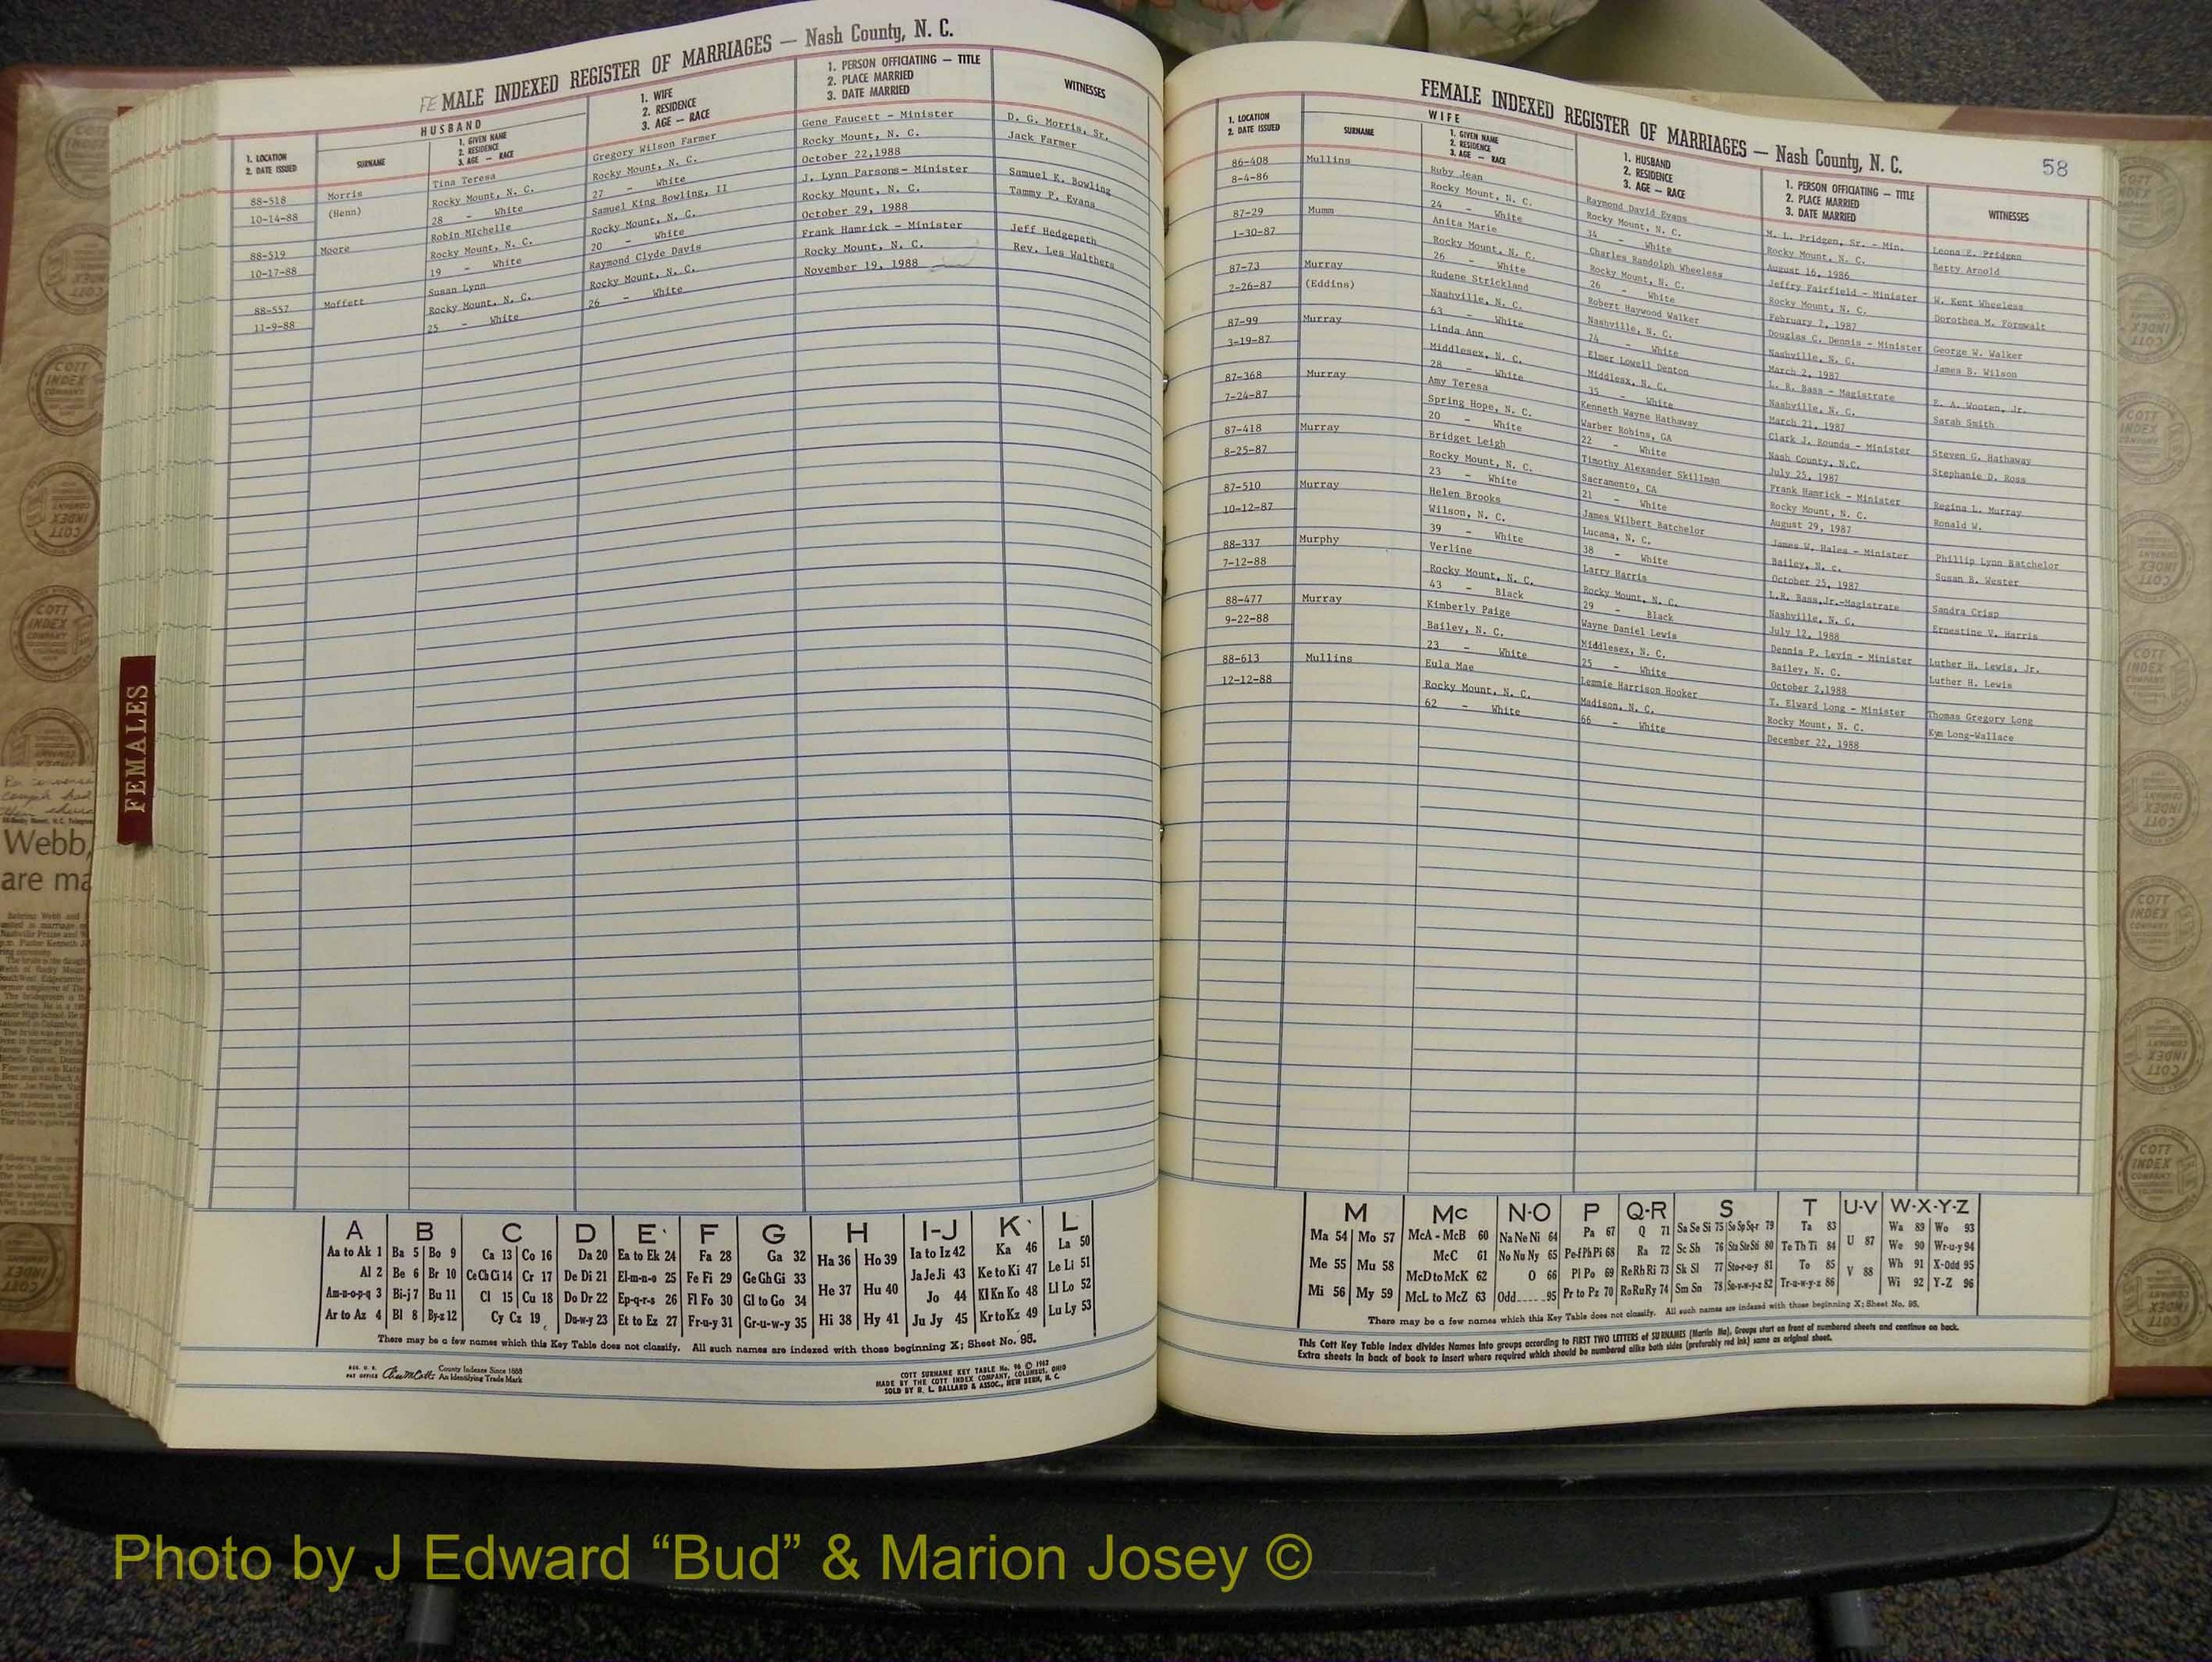 FEMALE INDEXED REGISTER OF MARRIAGES — Nash County, N. C.
1. LOCATION
2. DATE ISSUED
HUSBAND
SURNAME
1. GIVEN NAME
2. RESIDENCE
3. AGE — RACE
1. WIFE
2. RESIDENCE
3. AGE — RACE
1. PERSON OFFICIATING — TITLE
2. PLACE MARRIED
3. DATE MARRIED
WITNESSES
88-518 Morris Tina Teresa Gregory Wilson Farmer Gene Faucett - Minister D. G. Morris, Sr.
10-14-88 (Henn) Rocky Mount, N. C. Rocky Mount, N. C. Rocky Mount, N. C. Jack Farmer
28 - White 27 - White October 22,1988
88-519 Moore Robin MIchelle Samuel King Bowling, II J. Lynn Parsons- Minister Samuel K. Bowling
10-17-88 Rocky Mount, N. C. Rocky Mount, N. C. Rocky Mount, N. C. Tammy P. Evans
19 - White 20 - White October 29, 1988
88-557 Moffett Susan Lynn Raymond Clyde Davis Frank Hamrick - Minister Jeff Hedgepeth
11-9-88 Rocky Mount, N. C. Rocky Mount, N. C. Rocky Mount, N. C. Rev. Les Walthers
25 - White 26 - White November 19, 1988
FEMALES
A B C D E F G H I-J K L
Aa to Ak 1 Ba 5 Bo 9 Ca 13 Co 16 Da 20 Ea to Ek 24 Fa 28 Ga 32 Ha 36 Ho 39 Ia to Iz 42 Ka 46 La 50
Al 2 Be 6 Br 10 Ce Ch Ci 14 Cr 17 De Di 21 El-m-n-o 25 Fe Fi 29 Ge Gh Gi 33 He 37 Hu 40 Ja Je Ji 43 Ke to Ki 47 Le Li 51
Am-n-o-p-q 3 Bi-j 7 Bu 11 Cl 15 Cu 18 Do Dr 22 Ep-q-r-s 26 Fl Fo 30 Gl to Go 34 Hi 38 Hy 41 Jo 44 Kl Kn Ko 48 Ll Lo 52
Ar to Az 4 Bl 8 By-z 12 Cy Cz 19 Du-w-y 23 Et to Ez 27 Fr-u-y 31 Gr-u-w-y 35 Ju Jy 45 Kr to Kz 49 Lu Ly 53
There may be a few names which this Key Table does not classify. All such names are indexed with those beginning X; Sheet No. 95.
County Indexes Since 1888
An Identifying Trade Mark
COTT SURNAME KEY TABLE No. 96 © 1962
MADE BY THE COTT INDEX COMPANY, COLUMBUS, OHIO
SOLD BY R. L. BALLARD & ASSOC., NEW BERN, N. C.
FEMALE INDEXED REGISTER OF MARRIAGES — Nash County, N. C.
58
1. LOCATION
2. DATE ISSUED
WIFE
SURNAME
1. GIVEN NAME
2. RESIDENCE
3. AGE — RACE
1. HUSBAND
2. RESIDENCE
3. AGE — RACE
1. PERSON OFFICIATING — TITLE
2. PLACE MARRIED
3. DATE MARRIED
WITNESSES
86-408 Mullins Ruby Jean Raymond David Evans M. L. Pridgen, Sr. - Min. Leona E. Pridgen
8-4-86 Rocky Mount, N. C. Rocky Mount, N. C. Rocky Mount, N. C. Betty Arnold
24 - White 34 - White August 16, 1986
87-29 Mumm Anita Marie Charles Randolph Wheeless Jeffry Fairfield - Minister W. Kent Wheeless
1-30-87 Rocky Mount, N. C. Rocky Mount, N. C. Rocky Mount, N. C. Dorothea M. Formwalt
26 - White 26 - White February 7, 1987
87-73 Murray Rudene Strickland Robert Haywood Walker Douglas C. Dennis - Minister George W. Walker
2-26-87 (Eddins) Nashville, N. C. Nashville, N. C. Nashville, N. C. James B. Wilson
63 - White 74 - White March 2, 1987
87-99 Murray Linda Ann Elmer Lowell Denton L. R. Bass - Magistrate E. A. Wooten, Jr.
3-19-87 Middlesex, N. C. Middlesx, N. C. Nashville, N. C. Sarah Smith
28 - White 35 - White March 21, 1987
87-368 Murray Amy Teresa Kenneth Wayne Hathaway Clark J. Rounds - Minister Steven G. Hathaway
7-24-87 Spring Hope, N. C. Warber Robins, GA Nash County, N.C. Stephanie D. Ross
20 - White 22 - White July 25, 1987
87-418 Murray Bridget Leigh Timothy Alexander Skillman Frank Hamrick - Minister Regina L. Murray
8-25-87 Rocky Mount, N. C. Sacramento, CA Rocky Mount, N. C. Ronald W.
23 - White 21 - White August 29, 1987
87-510 Murray Helen Brooks James Wilbert Batchelor James W. Hales - Minister Phillip Lynn Batchelor
10-12-87 Wilson, N. C. Lucama, N. C. Bailey, N. c. Susan B. Wester
39 - White 38 - White October 25, 1987
88-337 Murphy Verline Larry Harris L.R. Bass,Jr.-Magistrate Sandra Crisp
7-12-88 Rocky Mount, N. C. Rocky Mount, N. C. Nashville, N. C. Ernestine V. Harris
43 - Black 29 - Black July 12, 1988
88-477 Murray Kimberly Paige Wayne Daniel Lewis Dennis P. Levin - Minister Luther H. Lewis, Jr.
9-22-88 Bailey, N. C. Middlesex, N. C. Bailey, N. C. Luther H. Lewis
23 - White 25 - White October 2,1988
88-613 Mullins Eula Mae Lemmie Harrison Hooker T. Elward Long - Minister Thomas Gregory Long
12-12-88 Rocky Mount, N. C. Madison, N. C. Rocky Mount, N. C. Kym Long-Wallace
62 - White 66 - White December 22, 1988
M Mc N-O P Q-R S T U-V W-X-Y-Z
Ma 54 Mo 57 McA - McB 60 Na Ne Ni 64 Pa 67 Q 71 Sa Se Si 75 So Sp Sq-r 79 Ta 83 U 87 Wa 89 Wo 93
Me 55 Mu 58 McC 61 No Nu Ny 65 Pe-f Ph Pi 68 Ra 72 Sc Sh 76 Sta Ste Sti 80 Te Th Ti 84 V 88 We 90 Wr-u-y 94
Mi 56 My 59 McD to McK 62 O 66 Pl Po 69 Re Rh Ri 73 Sk Sl 77 Sto-r-u-y 81 To 85 Wh 91 X-Odd 95
McL to McZ 63 Odd 95 Pr to Pz 70 Ro Ru Ry 74 Sm Sn 78 Su-v-w-y-z 82 Tr-u-w-y-z 86 Wi 92 Y-Z 96
There may be a few names which this Key Table does not classify. All such names are indexed with those beginning X; Sheet No. 95.
This Cott Key Table Index divides Names into groups according to FIRST TWO LETTERS of SURNAMES (Martin Ma), Groups start on front of numbered sheets and continue on back.
Extra sheets in back of book to insert where required which should be numbered alike both sides (preferably red ink) same as original sheet.
Webb,
are ma
COTT
INDEX
COMPANY
Photo by J Edward “Bud” & Marion Josey ©